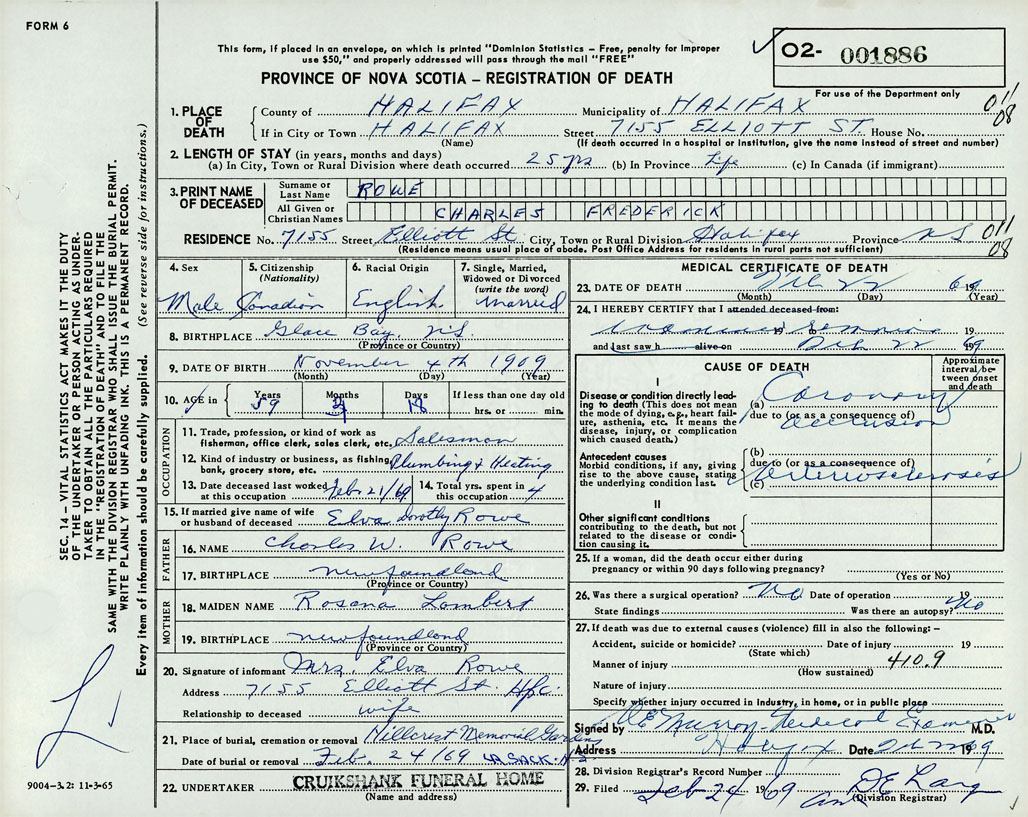 FORM 6
This form, if placed in an envelope, on which is printed "Dominion Statistics – Free, penalty for improper
use $50," and properly addressed will pass through the mail "FREE"
O2- 001886
PROVINCE OF NOVA SCOTIA – REGISTRATION OF DEATH
For use of the Department only
011
08
1. PLACE OF DEATH
County of HALIFAX Municipality of HALIFAX
If in City or Town HALIFAX Street 7155 ELLIOTT ST. House No.
(Name) (If death occurred in a hospital or institution, give the name instead of street and number)
2. LENGTH OF STAY (in years, months and days)
(a) In City, Town or Rural Division where death occurred 25 yrs (b) In Province Life (c) In Canada (if immigrant)
3. PRINT NAME OF DECEASED
Surname or Last Name ROWE
All Given or Christian Names CHARLES FREDERICK
RESIDENCE No. 7155 Street Elliott St. City, Town or Rural Division Halifax Province NS
(Residence means usual place of abode. Post Office Address for residents in rural parts not sufficient)
011
08
4. Sex Male
5. Citizenship (Nationality) Canadian
6. Racial Origin English
7. Single, Married, Widowed or Divorced (write the word) Married
8. BIRTHPLACE Glace Bay, NS
(Province or Country)
9. DATE OF BIRTH November 4th 1909
(Month) (Day) (Year)
10. AGE in Years 59 Months 3 Days 18 If less than one day old hrs. or min.
OCCUPATION
11. Trade, profession, or kind of work as fisherman, office clerk, sales clerk, etc. Salesman
12. Kind of industry or business, as fishing, bank, grocery store, etc. Plumbing & Heating
13. Date deceased last worked at this occupation Feb 21/69 14. Total yrs. spent in this occupation 4
15. If married give name of wife or husband of deceased Elva Dorothy Rowe
FATHER
16. NAME Charles W. Rowe
17. BIRTHPLACE Newfoundland
(Province or Country)
MOTHER
18. MAIDEN NAME Rosana Lambert
19. BIRTHPLACE Newfoundland
(Province or Country)
20. Signature of informant Mrs. Elva Rowe
Address 7155 Elliott St. Hfx.
Relationship to deceased wife
21. Place of burial, cremation or removal Hillcrest Memorial Gardens
Date of burial or removal Feb. 24/69 SACK. N.S.
22. UNDERTAKER CRUIKSHANK FUNERAL HOME
(Name and address)
MEDICAL CERTIFICATE OF DEATH
23. DATE OF DEATH Feb 22 69 19
(Month) (Day) (Year)
24. I HEREBY CERTIFY that I attended deceased from:
19 to 19
and last saw h alive on Feb 22 69
CAUSE OF DEATH
Approximate interval between onset and death
I
Disease or condition directly leading to death (This does not mean the mode of dying, e.g., heart failure, asthenia, etc. It means the disease, injury, or complication which caused death.)
(a) Coronary
due to (or as a consequence of) occlusion
Antecedent causes
Morbid conditions, if any, giving rise to the above cause, stating the underlying condition last.
(b)
due to (or as a consequence of)
Arteriosclerosis
(c)
II
Other significant conditions contributing to the death, but not related to the disease or condition causing it.
25. If a woman, did the death occur either during
pregnancy or within 90 days following pregnancy?
(Yes or No)
26. Was there a surgical operation? No Date of operation 19
State findings Was there an autopsy? No
27. If death was due to external causes (violence) fill in also the following: –
Accident, suicide or homicide? Date of injury 19
(State which)
Manner of injury 410.9
(How sustained)
Nature of injury
Specify whether injury occurred in industry, in home, or in public place
Signed by Murray Medical Examiner M.D.
Address Halifax Date 19
28. Division Registrar's Record Number
29. Filed Feb 24 1969
(Division Registrar)
SEC. 14 – VITAL STATISTICS ACT MAKES IT THE DUTY
OF THE UNDERTAKER OR PERSON ACTING AS UNDER-
TAKER TO OBTAIN ALL THE PARTICULARS REQUIRED
IN THE "REGISTRATION OF DEATH" AND TO FILE THE
SAME WITH THE DIVISION REGISTRAR WHO SHALL ISSUE THE BURIAL PERMIT.
WRITE PLAINLY WITH UNFADING INK. THIS IS A PERMANENT RECORD.
Every item of information should be carefully supplied. (See reverse side for instructions.)
9004-3.2: 11-3-65